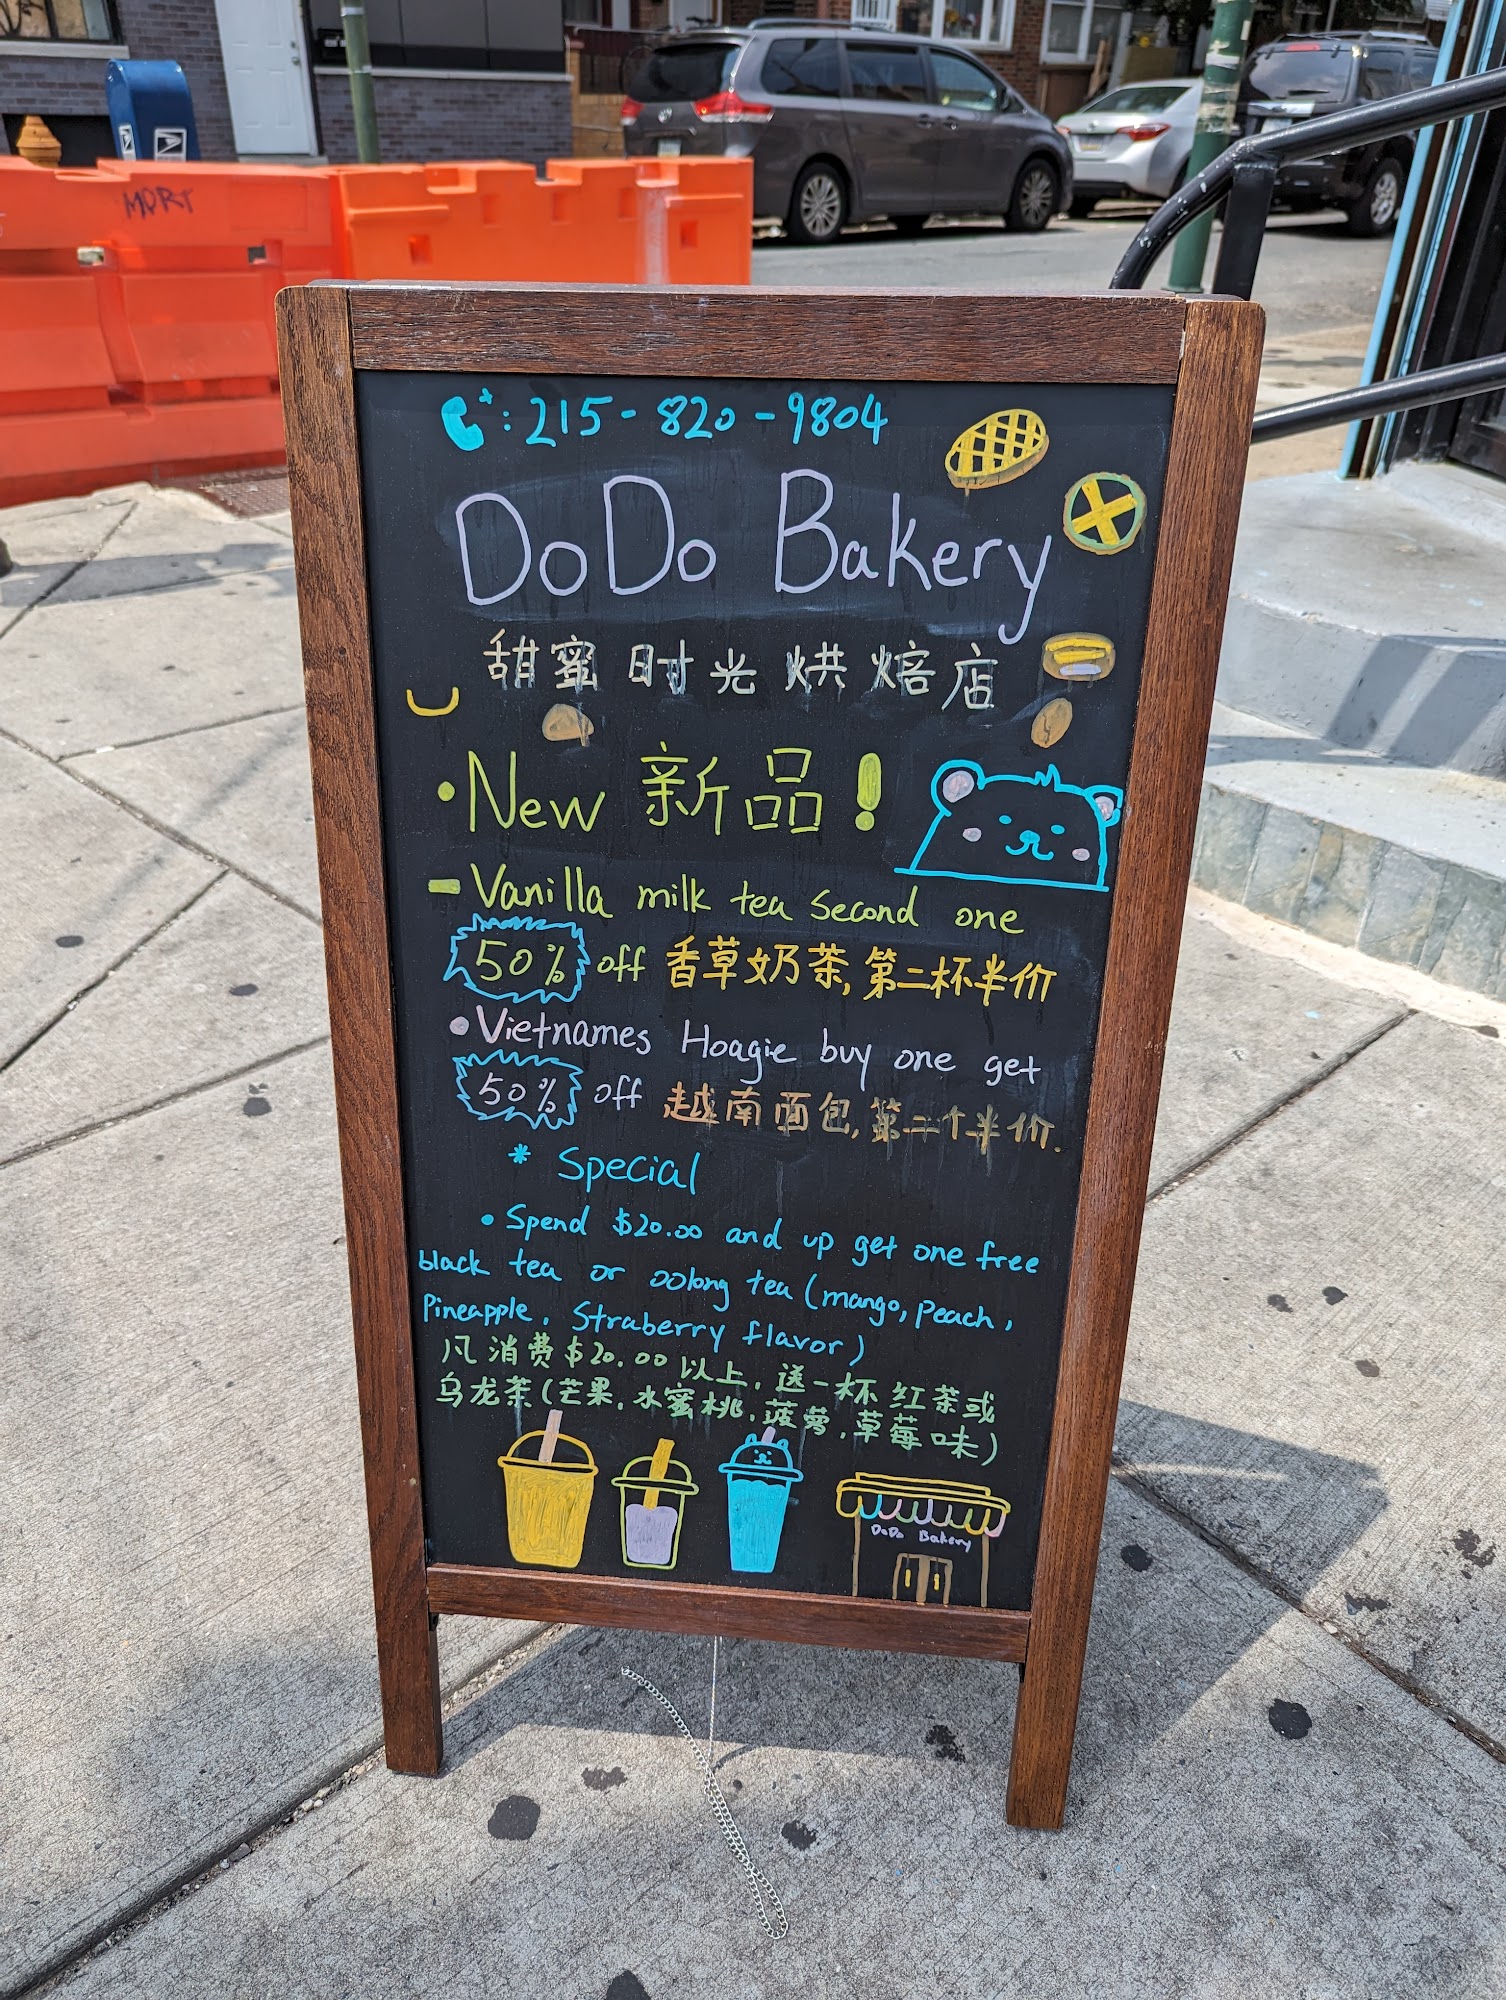 MORT
: 215-820-9804
DoDo Bakery
甜蜜时光烘焙店
• New 新品！
- Vanilla milk tea second one
50% off 香草奶茶,第二杯半价
• Vietnames Hoagie buy one get
50% off 越南面包,第二个半价.
* Special
• Spend $20.00 and up get one free
black tea or oolong tea (mango, peach,
Pineapple, Straberry flavor)
凡消费$20.00以上,送一杯红茶或
乌龙茶(芒果,水蜜桃,菠萝,草莓味)
DoDo Bakery